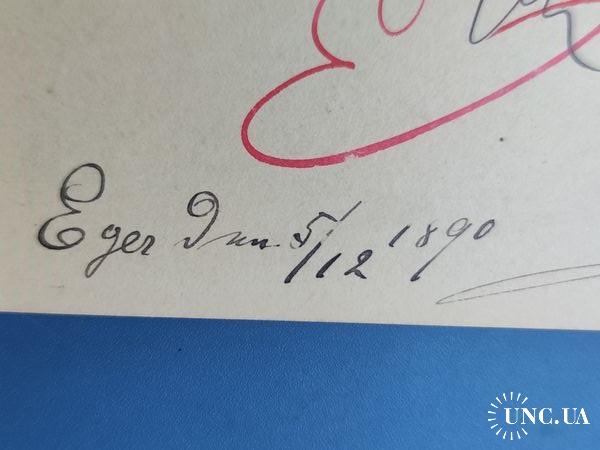 Eger Den 5/12 1890
UNC.UA